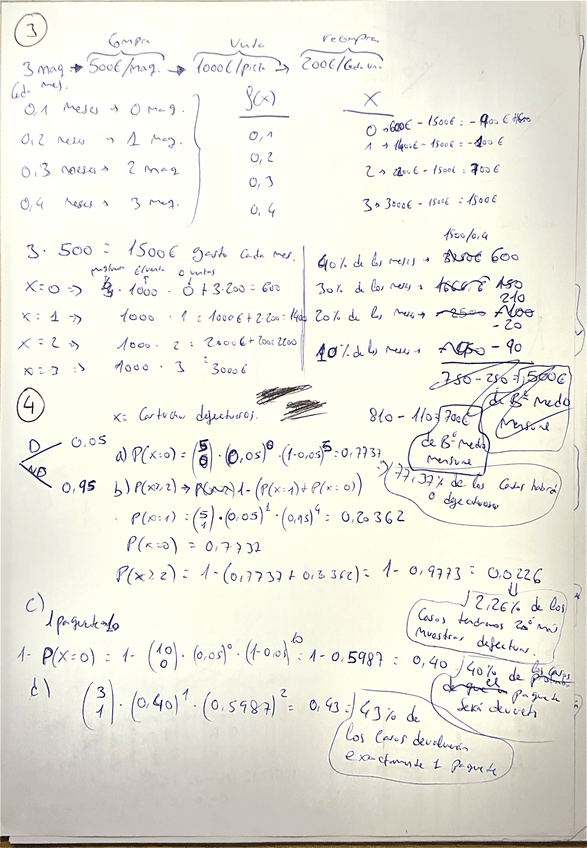 3
Compra Venta recompra
3 maq → 500€/maq. → 1000€/pieza → 200€/cada una
Cada mes.
f(x) X
0,1 meses → 0 maq. 0,1 0 → 600€ - 1500€ = -900€
0,2 meses → 1 maq. 0,2 1 → 1400€ - 1500€ = -100€
0,3 meses → 2 maq 0,3 2 → 2200€ - 1500€ = 700€
0,4 meses → 3 maq. 0,4 3 → 3000€ - 1500€ = 1500€
3 · 500 = 1500€ gasto cada mes.
x=0 => · 1000 · 0 + 3·200 = 600
x=1 => 1000 · 1 = 1000€ + 2·200 = 1400
x=2 => 1000 · 2 = 2000€ + 200 = 2200
x=3 => 1000 · 3 = 3000€
1500/0,4
40% de los meses → 600
30% de los meses → 210
20% de los meses → -20
10% de los meses → -90
750 - 250 = 500€
de Bº medio
mensual
810 - 110 = 700€
de Bº medio
mensual
4
x = Cartuchos defectuosos.
D 0,05
ND 0,95
a) P(x=0) = (5 0) · (0,05)^0 · (1-0,05)^5 = 0,7737
=> 77,37% de los casos habrá
0 defectuosos
b) P(x≥2) → 1 - (P(x=1) + P(x=0)
· P(x=1) = (5 1) · (0,05)^1 · (0,95)^4 = 0,20362
P(x=0) = 0,7737
P(x≥2) = 1 - (0,7737 + 0,20362) = 1 - 0,9773 = 0,0226
2,26% de los
casos tendremos 2 o más
muestras defectuosas.
c)
1 paquete = 10
1 - P(x=0) = 1 - (10 0) · (0,05)^0 · (1-0,05)^10 = 1 - 0,5987 = 0,40
40% de los casos
el paquete
será devuelto
d) (3 1) · (0,40)^1 · (0,5987)^2 = 0,43 =
43% de
los casos devolverán
exactamente 1 paquete